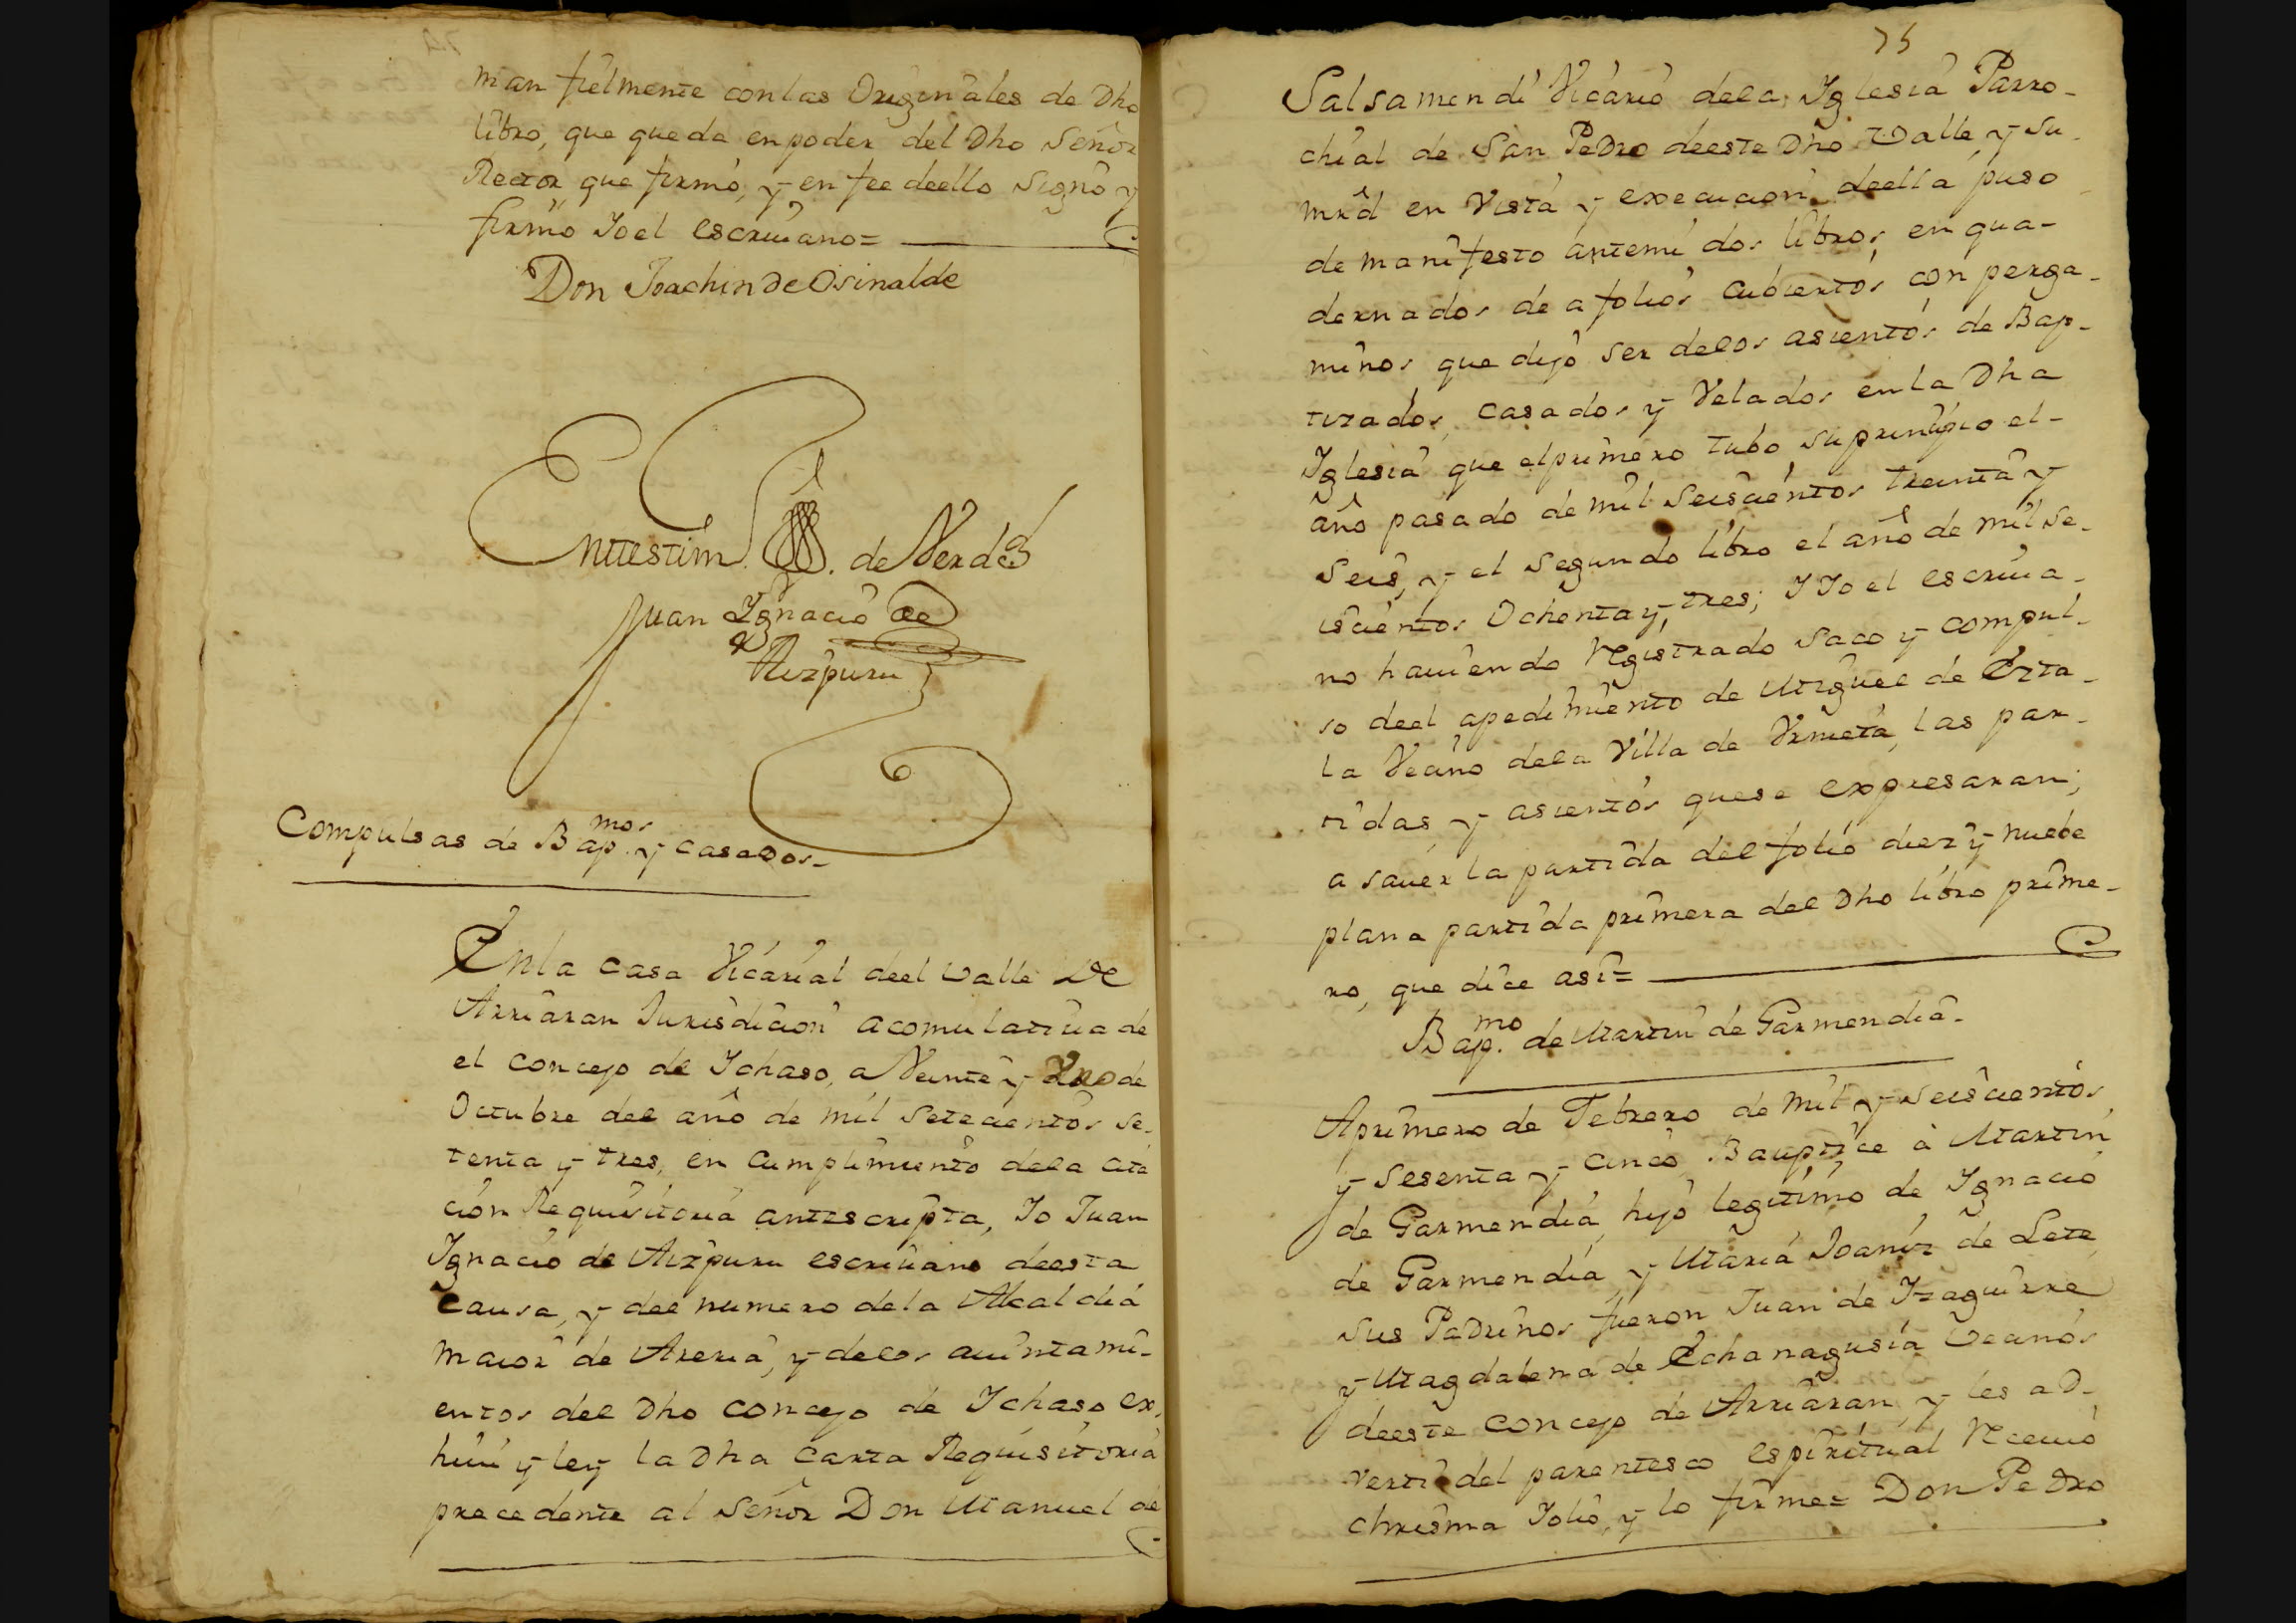 man fielmente con las Originales de Dho
libro, que queda en poder del Dho Señor
Rector que firmò, y en fee deello signò y
firmò Io el escriuano=
Don Joachin de Osinalde
En testim. de Verdad
Juan Ygnacio de
Aizpuru
Compulsas de Bap.mos y casados-
En la casa Vicarial deel valle de
Arriaran Jurisdicion acomulatiua de
el concejo de Ichaso, a Veinte y Uno de
Octubre del año de mil setecientos se-
tenta y tres, en cumplimiento dela cita
cion Requisitoria antescripta, Io Juan
Ygnacio de Aizpuru escriuano deesta
causa, y del numero dela Alcaldia
maior de Areria, y delos aiuntami-
entos del Dho concejo de Ichaso, ex-
hiui y ley la Dha carta Requisitoria
precedente al Señor Don Manuel de
75
Salsamendi Vicario dela Iglesia Parro-
chial de San Pedro deeste Dho Valle, y su
mrd en vista y execucion deella puso
de manifesto antemi dos libros enqua-
dernados de a folios cubiertos con perga-
minos que dijo ser delos asientos de Bap-
tizados, casados y Velados en la Dha
Iglesia que el primero tubo su principio el-
año pasado de mil seiscientos treinta y
seis, y el segundo libro el año de mil se-
iscientos Ochenta y tres; I Io el escriua-
no hauiendo registrado saco y compul-
so deel apedimiento de Miguel de Ezta-
la Vecino dela Villa de Vrnieta, las par-
tidas y asientos quese expresaran;
a sauer la partida del folio diez y nuebe
plana partida primera del Dho libro prime-
ro, que dice asi=
Bap.mo de Martin de Garmendia-
A primero de Febrero de mil y seiscientos
y sesenta y cinco Bauptice à Martin
de Garmendia, hijo legitimo de Ignacio
de Garmendia y Maria Joaniz de Lete,
sus Padrinos fueron Juan de Izaguirre
y Magdalena de Echanagusia Vecinos
deeste concejo de Arriaran, y les ad-
verti del parentesco espiritual Reciuio
chrisma Iolio, y lo firme= Don Pedro